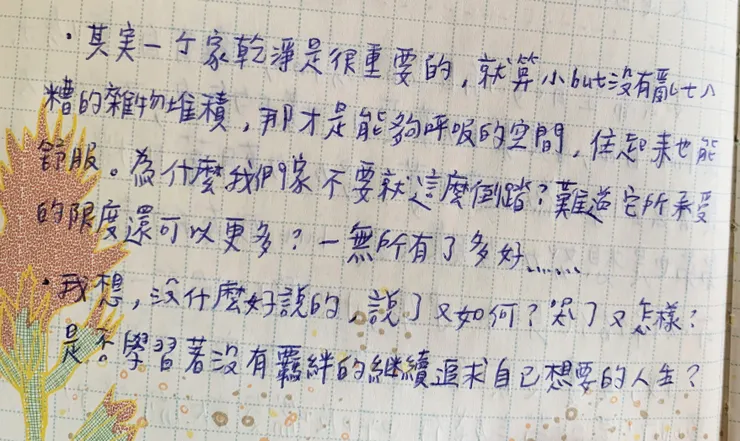 ·其実一个家乾淨是很重要的，就算小but没有亂七八
糟的雜物堆積，那才是能夠呼吸的空間，住起來也能
舒服。為什麼我們家不要就這麼倒踏？難道它所承受
的限度還可以更多？一無所有了多好......
·我想，没什麼好説的，説了又如何？哭了又怎樣？
是否學習著没有羈絆的継續追求自己想要的人生？